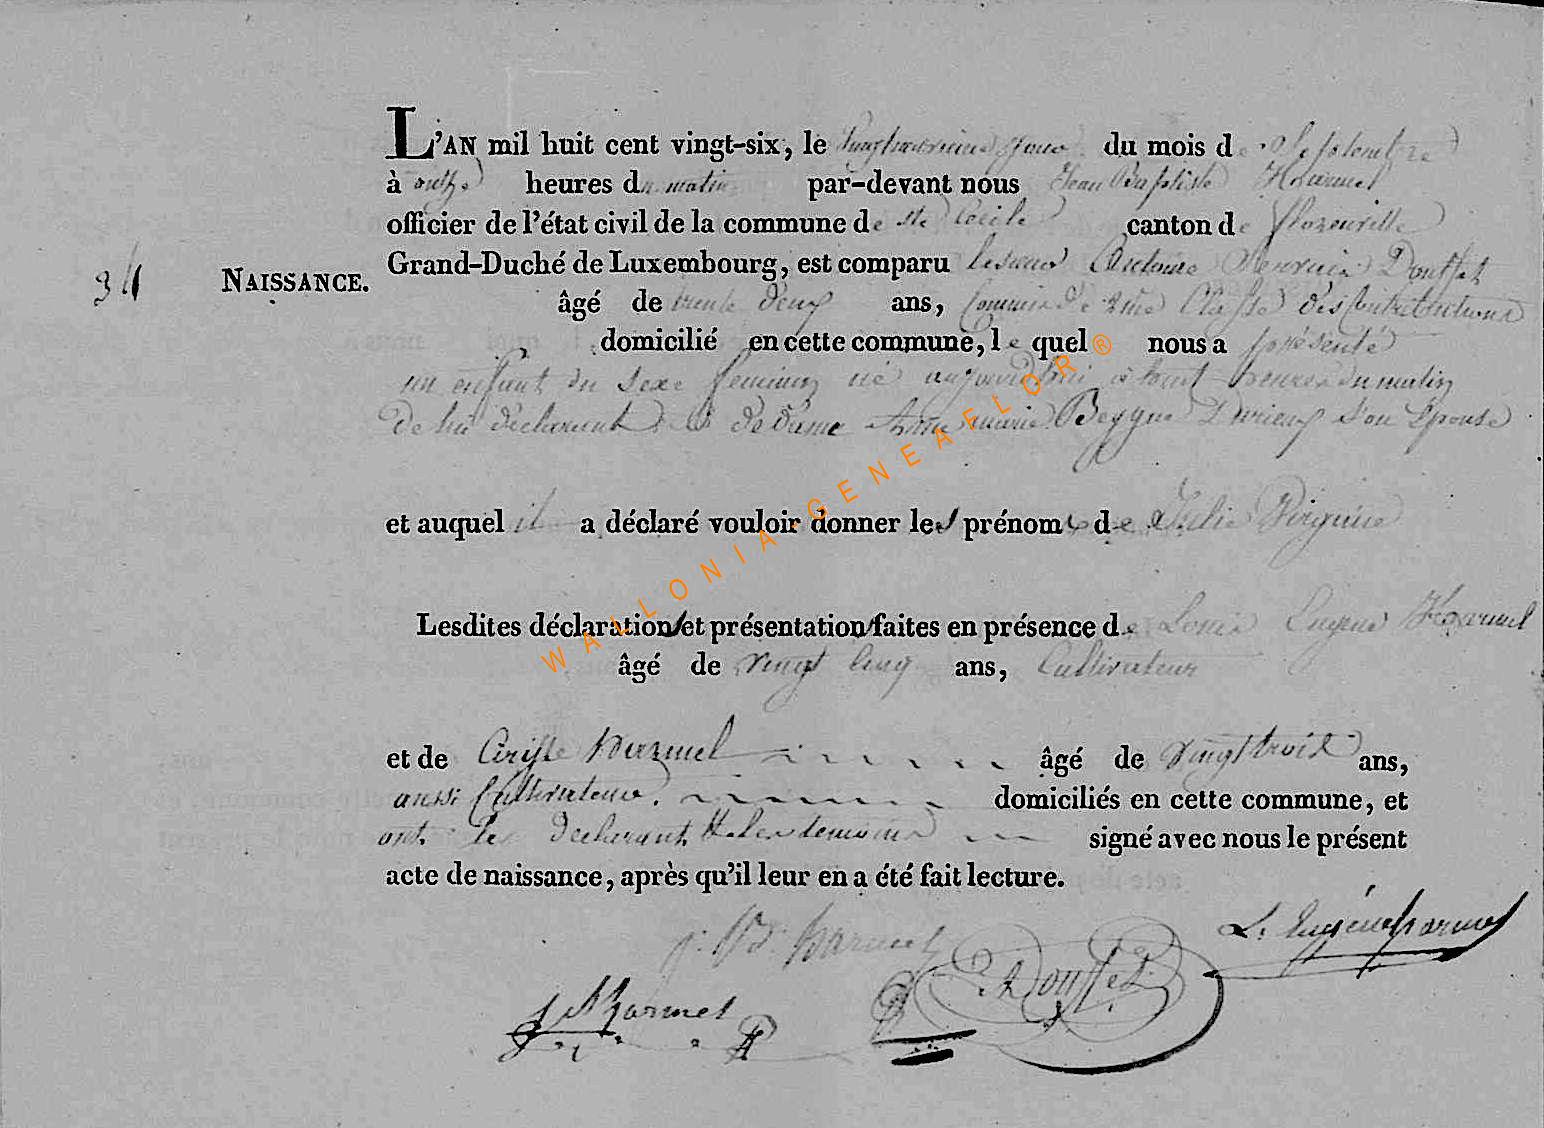 L'AN mil huit cent vingt-six, le jour du mois de Septembre
à onze heures du matin par-devant nous Jean Baptiste Harmel
officier de l'état civil de la commune de Ste Cécile canton de florenville
34 NAISSANCE. Grand-Duché de Luxembourg, est comparu le sieur Antoine Douffet
âgé de trente deux ans, Commis de 2me Classe des Contributions
domicilié en cette commune, le quel nous a présenté
un enfant du sexe feminin né aujourd'hui à huit heures du matin
de lui déclarant et de dame Anne marie son Epouse
et auquel il a déclaré vouloir donner les prénoms de Julie Virginie
Lesdites déclaration et présentation faites en présence de Louis Eugene Harmel
âgé de vingt cinq ans, Cultivateur
et de Harmel âgé de vingt trois ans,
aussi Cultivateur. domiciliés en cette commune, et
ont le déclarant et les temoins signé avec nous le présent
acte de naissance, après qu'il leur en a été fait lecture.
J. Bte. harmel
L. Eugène harmel
A Douffet.
harmel
WALLONIA-GENEAFLOR®